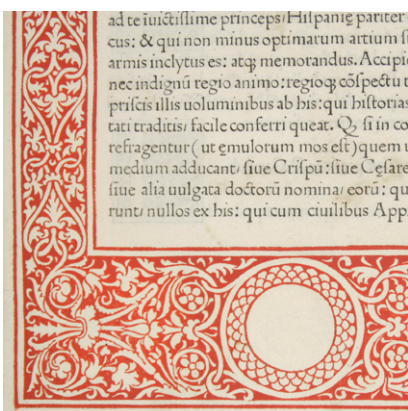 ad te iuictissime princeps/Hispanię pariter
cus: & qui non minus optimarum artium
armis inclytus es: atq; memorandus. Accipi
nec indignū regio animo: regioq; cōspectu
priscis illis uoluminibus ab his: qui historias
tati traditis/ facile conferri queat. Q, si in co
refragentur (ut ęmulorum mos est) quem
medium adducant/ siue Crispū: siue Cęsare
siue alia uulgata doctorū nomina/ eorū: qu
runt/ nullos ex his: qui cum ciuilibus App